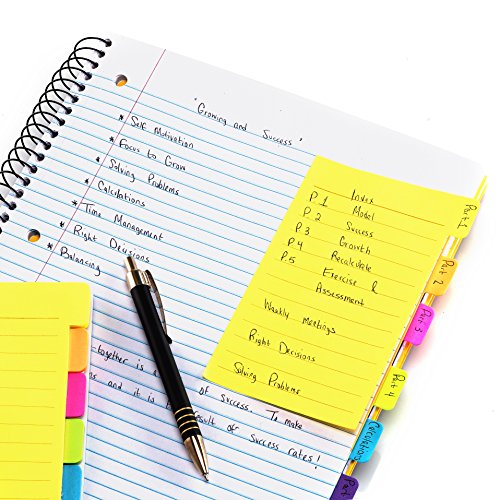 "Growing and Success"
* Self Motivation
* Focus to Grow
* Solving Problems
* Calculations
* Time Management
* Right Decisions
* Balancing
together is
and it is
of success. To make
result of success rates!
Index
P.1 Model
P.2 Success
P.3 Growth
P.4 Recalculate
P.5 Exercise &
Assessment
Weekly Meetings
Right Decisions
Solving Problems
Part 1
Part 2
Part 3
Part 4
Calculations